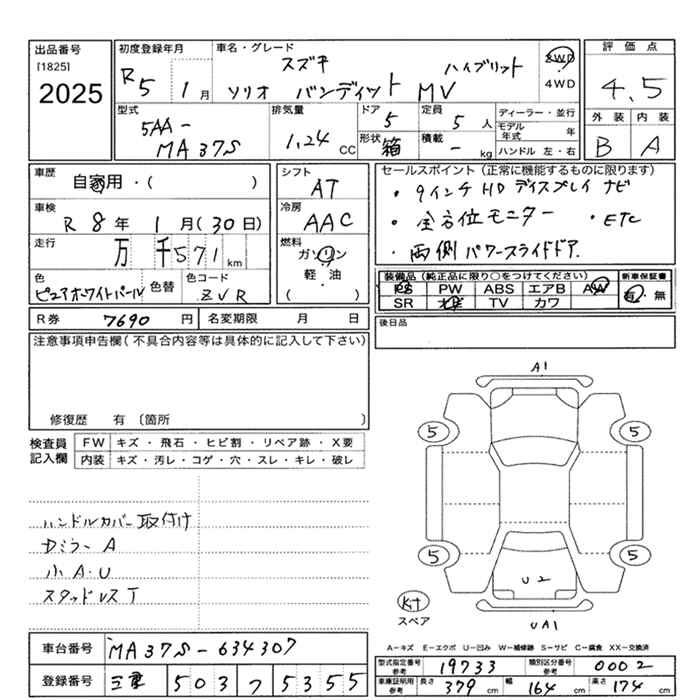 出品番号
[1825]
2025
初度登録年月
R5 1月
車名・グレード
スズキ ハイブリット
ソリオ バンディット MV
2WD
4WD
評価点
4.5
外装 内装
B A
型式
5AA-
MA37S
排気量
1.24 CC
ドア
5
形状
箱
定員
5人
積載
- kg
ディーラー・並行
モデル年式 年
ハンドル 左・右
車歴
自家用・( )
車検
R 8年 1月(30日)
走行
万 千571 km
色
ピュアホワイトパール
色替
色コード
ZVR
シフト
AT
冷房
AAC
燃料
ガソリン
軽・油
( )
セールスポイント(正常に機能するものに限ります)
・9インチHDディスプレイナビ
・全方位モニター ・ETC
・両側パワースライドドア.
装備品(純正品に限り○をつけてください)
PS PW ABS エアB AW
SR TV カワ
新車保証書
有・無
R券 7690円
名変期限 月 日
後日品
注意事項申告欄(不具合内容等は具体的に記入して下さい)
修復歴 有〔箇所 〕
検査員記入欄
FW キズ・飛石・ヒビ割・リペア跡・X要
内装 キズ・汚レ・コゲ・穴・スレ・キレ・破レ
ハンドルカバー取付け
小A・U
スタッドレスT
A1
5
5
5
5
U2
UA1
スペア
A=キズ E=エクボ U=凹み W=補修跡 S=サビ C=腐食 XX=交換済
車台番号
MA37S-634307
登録番号
三重 503 フ 5355
型式指定番号
参考
19733
類別区分番号
参考
0002
車庫証明用
参考
長さ 379 cm 幅 164 cm 高さ 174 cm